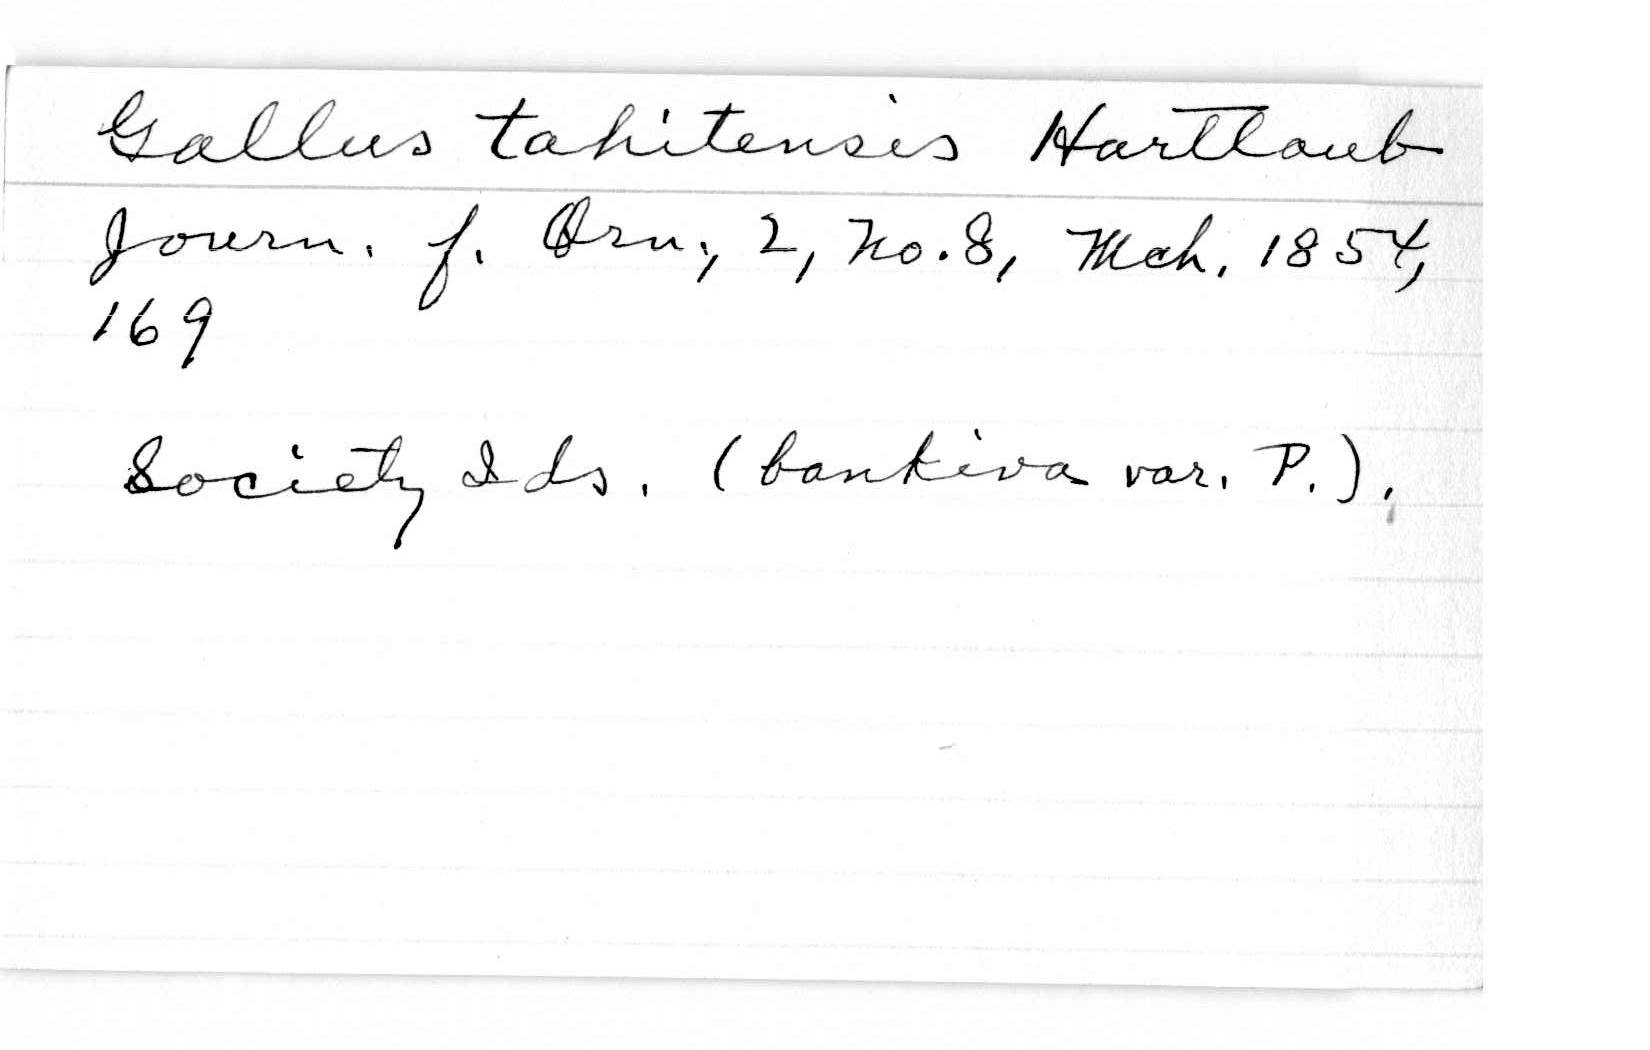 Gallus tahitensis Hartlaub
Journ. f. Orn., 2, no. 8, Mch. 1854,
169
Society Ids. (bankiva var. P.).